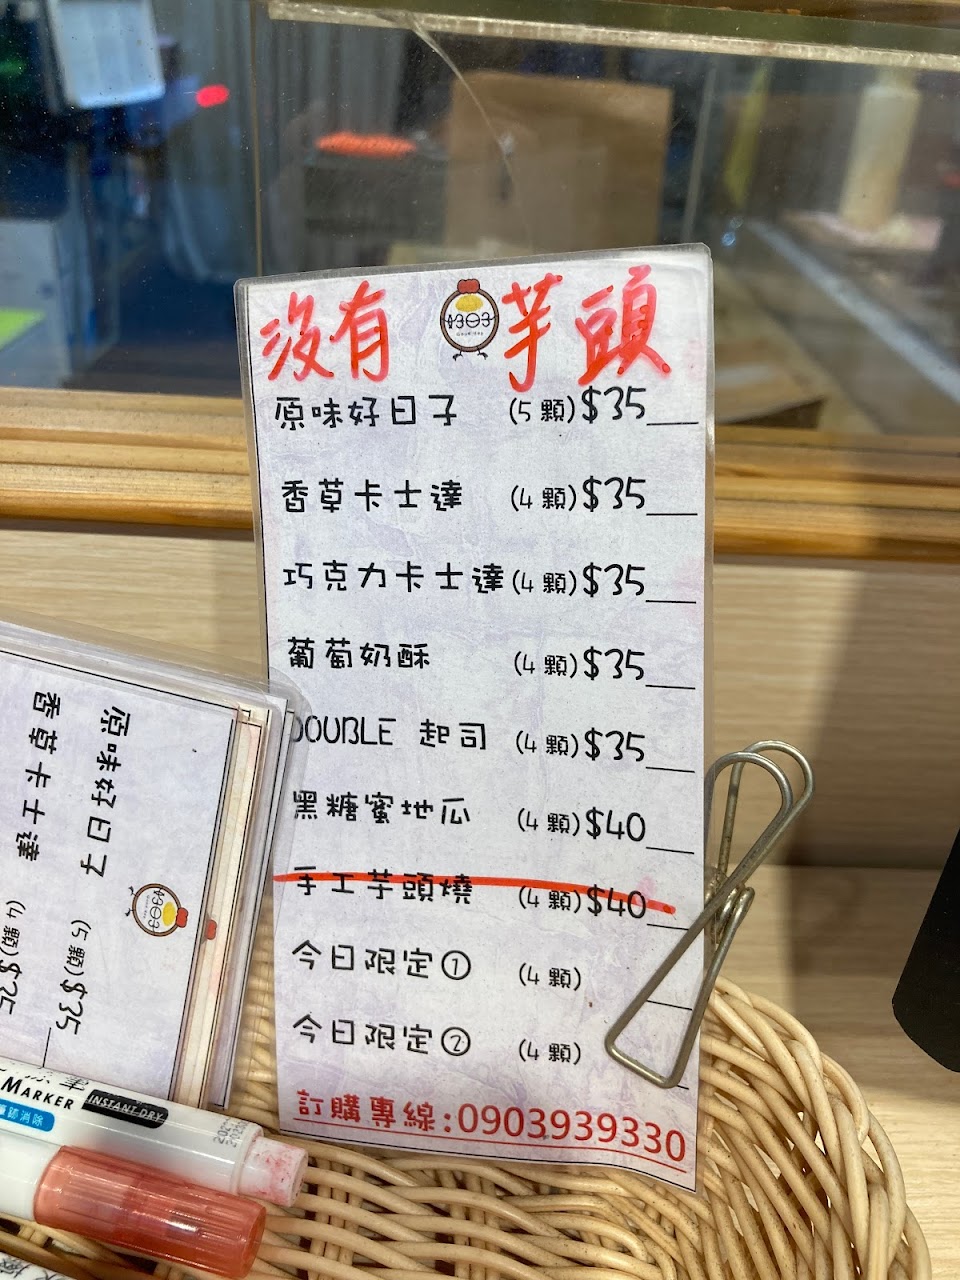 沒有 芋頭
4303
原味好日子 (5顆)$35
香草卡士達 (4顆)$35
巧克力卡士達(4顆)$35
葡萄奶酥 (4顆)$35
DOUBLE 起司 (4顆)$35
黑糖蜜地瓜 (4顆)$40
手工芋頭燒 (4顆)$40
今日限定① (4顆)
今日限定② (4顆)
訂購專線:0903939330
原味好日子 (5顆)$35
香草卡士達 (4顆)$35
MARKER INSTANT DRY